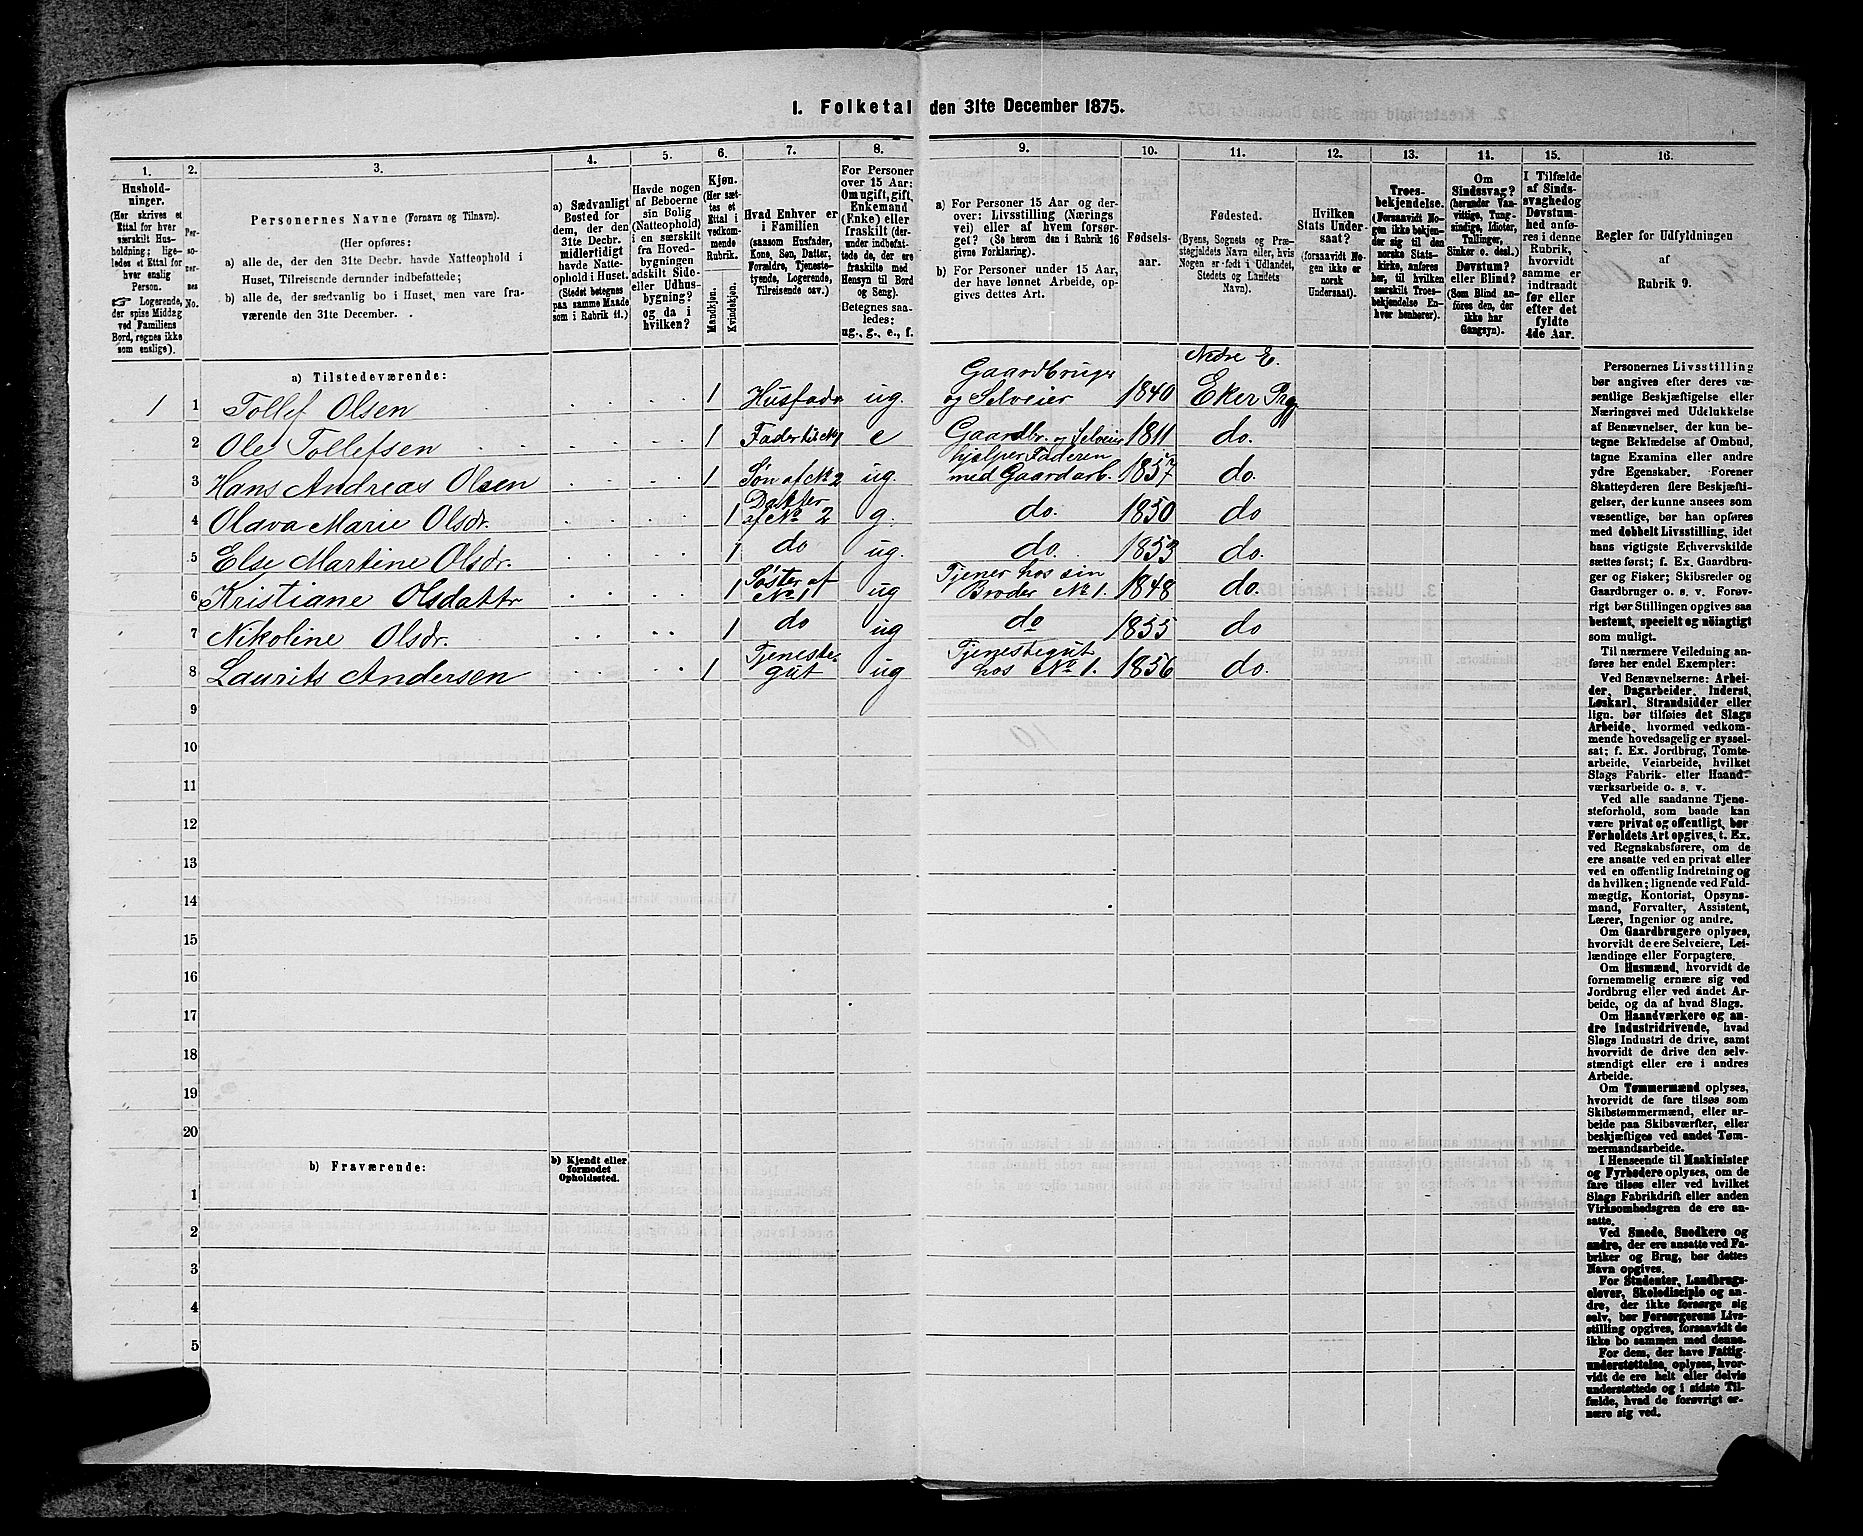 1. Folketal den 31te December 1875.
1.
Hushold-
ninger.
(Her skrives et
Ettal for hver
særskilt Hus-
holdning; lige-
ledes et Ettal for
hver enslig
Person.
☞ Logerende,
der spise Middag
ved Familiens
Bord, regnes ikke
som enslige).
2.
Per-
so-
ner-
nes
No.
3.
Personernes Navne (Fornavn og Tilnavn).
(Her opføres:
a) alle de, der den 31te Decbr. havde Natteophold i
Huset, Tilreisende derunder indbefattede;
b) alle de, der sædvanlig bo i Huset, men vare fra-
værende den 31te December.
4.
a) Sædvanligt
Bosted for
dem, der den
31te Decbr.
midlertidigt
havde Natte-
ophold i Huset.
(Stedet betegnes
paa samme Maade
som i Rubrik 11.)
5.
Havde nogen
af Beboerne
sin Bolig
(Natteophold)
i en særskilt
fra Hoved-
bygningen
adskilt Side-
eller Udhus-
bygning?
og da i
hvilken?
6.
Kjøn.
(Her sæt-
tes et
Ettal i
vedkom-
mende
Rubrik.
Mandkjøn.
Kvindekjøn.
7.
Hvad Enhver er
i Familien
(saasom Husfader,
Kone, Søn, Datter,
Forældre, Tjeneste-
tyende, Logerende,
Tilreisende osv.)
8.
For Personer
over 15 Aar:
Om ugift, gift,
Enkemand
(Enke) eller
fraskilt (der-
under indbefat-
tede de, der ere
fraskilte med
Hensyn til Bord
og Seng).
Betegnes saa-
ledes:
ug., g., e., f.
9.
a) For Personer 15 Aar og der-
over: Livsstilling (Nærings
vei) eller af hvem forsør-
get? (Se herom den i Rubrik 16
givne Forklaring).
b) For Personer under 15 Aar,
der have lønnet Arbeide, op-
gives dettes Art.
10.
Fødsels-
aar.
11.
Fødested.
(Byens, Sognets og Præ-
stegjældets Navn eller, hvis
Nogen er født i Udlandet,
Stedets og Landets
Navn).
12.
Hvilken
Stats Under-
saat?
(forsaavidt No-
gen ikke er
norsk
Undersaat).
13.
Troes-
bekjendelse.
(Forsaavidt No-
gen ikke bekjen-
der sig til den
norske Stats-
kirke, anføres
her, til hvilken
særskilt Troes-
bekjendelse En-
hver henhører).
14.
Om
Sindssvag?
(herunder Van-
vittige, Tung-
sindige, Idioter,
Tullinger,
Sinker o. desl.)
Døvstum?
eller Blind?
(Som Blind an-
føres den, der
ikke har
Gangsyn).
15.
I Tilfælde
af Sinds-
svaghedog
Døvstum-
hed anfø-
res i denne
Rubrik,
hvorvidt
samme er
indtraadt
før eller
efter det
fyldte
4de Aar.
16.
Regler for Udfyldningen
af
Rubrik 9.
a) Tilstedeværende:
Gaardbruger Nedre E.
1 1 Tollef Olsen 1 Husfader ug. og Selveier 1840 Eker Prgj
2 Ole Tollefsen 1 e Gaardbr. og Selveier 1811 do.
hjælper Faderen
3 Hans Andreas Olsen 1 Søn af No 2 ug. med Gaardarb. 1857 do.
Datter
4 Olava Marie Olsdr. 1 af No 2 g. do. 1850 do
5 Else Martine Olsdr. 1 do ug. do. 1853 do.
Søster af Tjener hos sin
6 Kristiane Olsdattr 1 No 1 ug Broder No 1. 1848 do.
7 Nikoline Olsdr. 1 do ug do 1855 do
Tjeneste- Tjenestegut
8 Laurits Andersen 1 gut ug hos No 1. 1856 do.
9
10
11
12
13
14
15
16
17
18
19
20
b) Fraværende:
b) Kjendt eller
formodet
Opholdssted.
1
2
3
4
5
Personernes Livsstilling
bør angives efter deres væ-
sentlige Beskjæftigelse eller
Næringsvei med Udelukkelse
af Benævnelser, der kun be-
tegne Beklædelse af Ombud,
tagne Examina eller andre
ydre Egenskaber. Forener
Skatteyderen flere Beskjæfti-
gelser, der kunne ansees som
væsentlige, bør han opføres
med dobbelt Livsstilling, idet
hans vigtigste Erhvervskilde
sættes først; f. Ex. Gaardbru-
ger og Fisker; Skibsreder og
Gaardbruger o. s. v. Forøv-
rigt bør Stillingen opgives saa
bestemt, specielt og nøiagtigt
som muligt.
Til nærmere Veiledning an-
føres her endel Exempler:
Ved Benævnelserne: Arbei-
der, Dagarbeider, Inderst,
Løskarl, Strandsidder eller
lign. bør tilføies det Slags
Arbeide, hvormed vedkom-
mende hovedsagelig er syssel-
sat; f. Ex. Jordbrug, Tomte-
arbeide, Veiarbeide, hvilket
Slags Fabrik- eller Haand-
værksarbeide o. s. v.
Ved alle saadanne Tjene-
steforhold, som baade kan
være privat og offentligt, bør
Forholdets Art opgives, t. Ex.
ved Regnskabsførere, om de
ere ansatte ved en privat eller
ved en offentlig Indretning og
da hvilken; lignende ved Fuld-
mægtig, Kontorist, Opsyns-
mand, Forvalter, Assistent,
Lærer, Ingeniør og andre.
Om Gaardbrugere oplyses,
hvorvidt de ere Selveiere, Lei-
lændinge eller Forpagtere.
Om Husmænd, hvorvidt de
fornemmelig ernære sig ved
Jordbrug eller ved andet Ar-
beide, og da af hvad Slags.
Om Haandværkere og an-
dre Industridrivende, hvad
Slags Industri de drive, samt
hvorvidt de drive den selv-
stændigt eller ere i andres
Arbeide.
Om Tømmermænd oplyses,
hvorvidt de fare tilsøs som
Skibstømmermænd, eller ar-
beide paa Skibsværfter, eller
beskjæftiges ved andet Tøm-
mermandsarbeide.
I Henseende til Maskinister
og Fyrbødere oplyses, om de
fare tilsøs eller ved hvilket
Slags Fabrikdrift eller anden
Virksomhedsgren de ere an-
satte.
Ved Smede, Snedkere og
andre, der ere ansatte ved Fa-
briker og Brug, bør dettes
Navn opgives.
For Studenter, Landbrugs-
elever, Skoledisciple og an-
dre, der ikke forsørge sig
selv, bør Forsørgerens Livs-
stilling opgives, forsaavidt de
ikke bo sammen med denne.
For dem, der have Fattig-
understøttelse, oplyses, hvor-
vidt de ere helt eller delvis
understøttede og i sidste Til-
fælde, hvad de forøvrigt er-
nære sig ved.